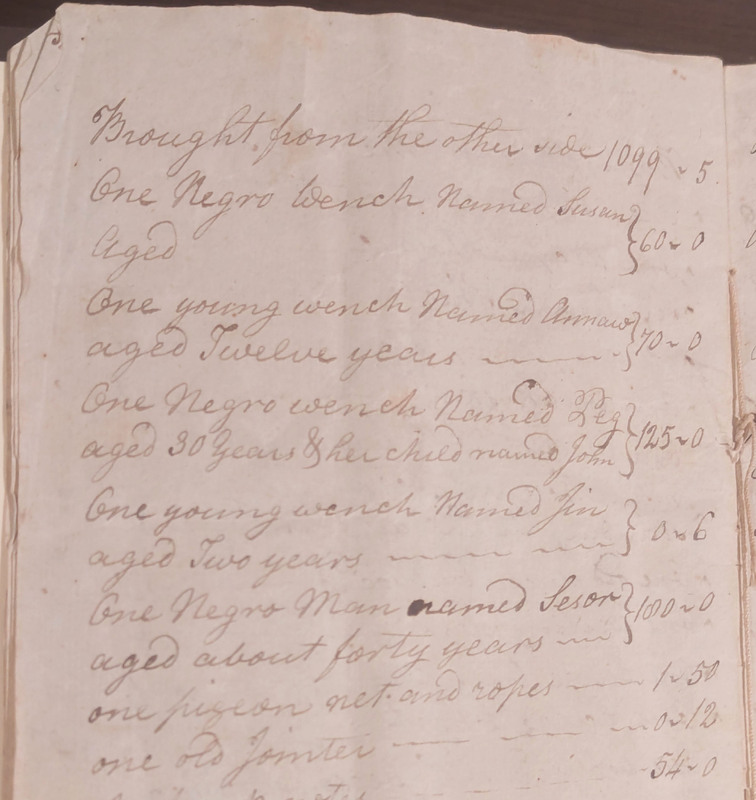 Brought from the other side 1099 ~ 5
One Negro Wench Named Susan
Aged } 60 ~ 0
One young wench Named Annaw
aged Twelve years } 70 ~ 0
One Negro wench Named Peg
aged 30 Years & her child named John } 125 ~ 0
One young wench Named Jin
aged Two years } 0 ~ 6
One Negro Man named Sesor
aged about forty years } 100 ~ 0
one pigeon net and ropes 1 ~ 50
one old Jointer 0 ~ 12
54 ~ 0